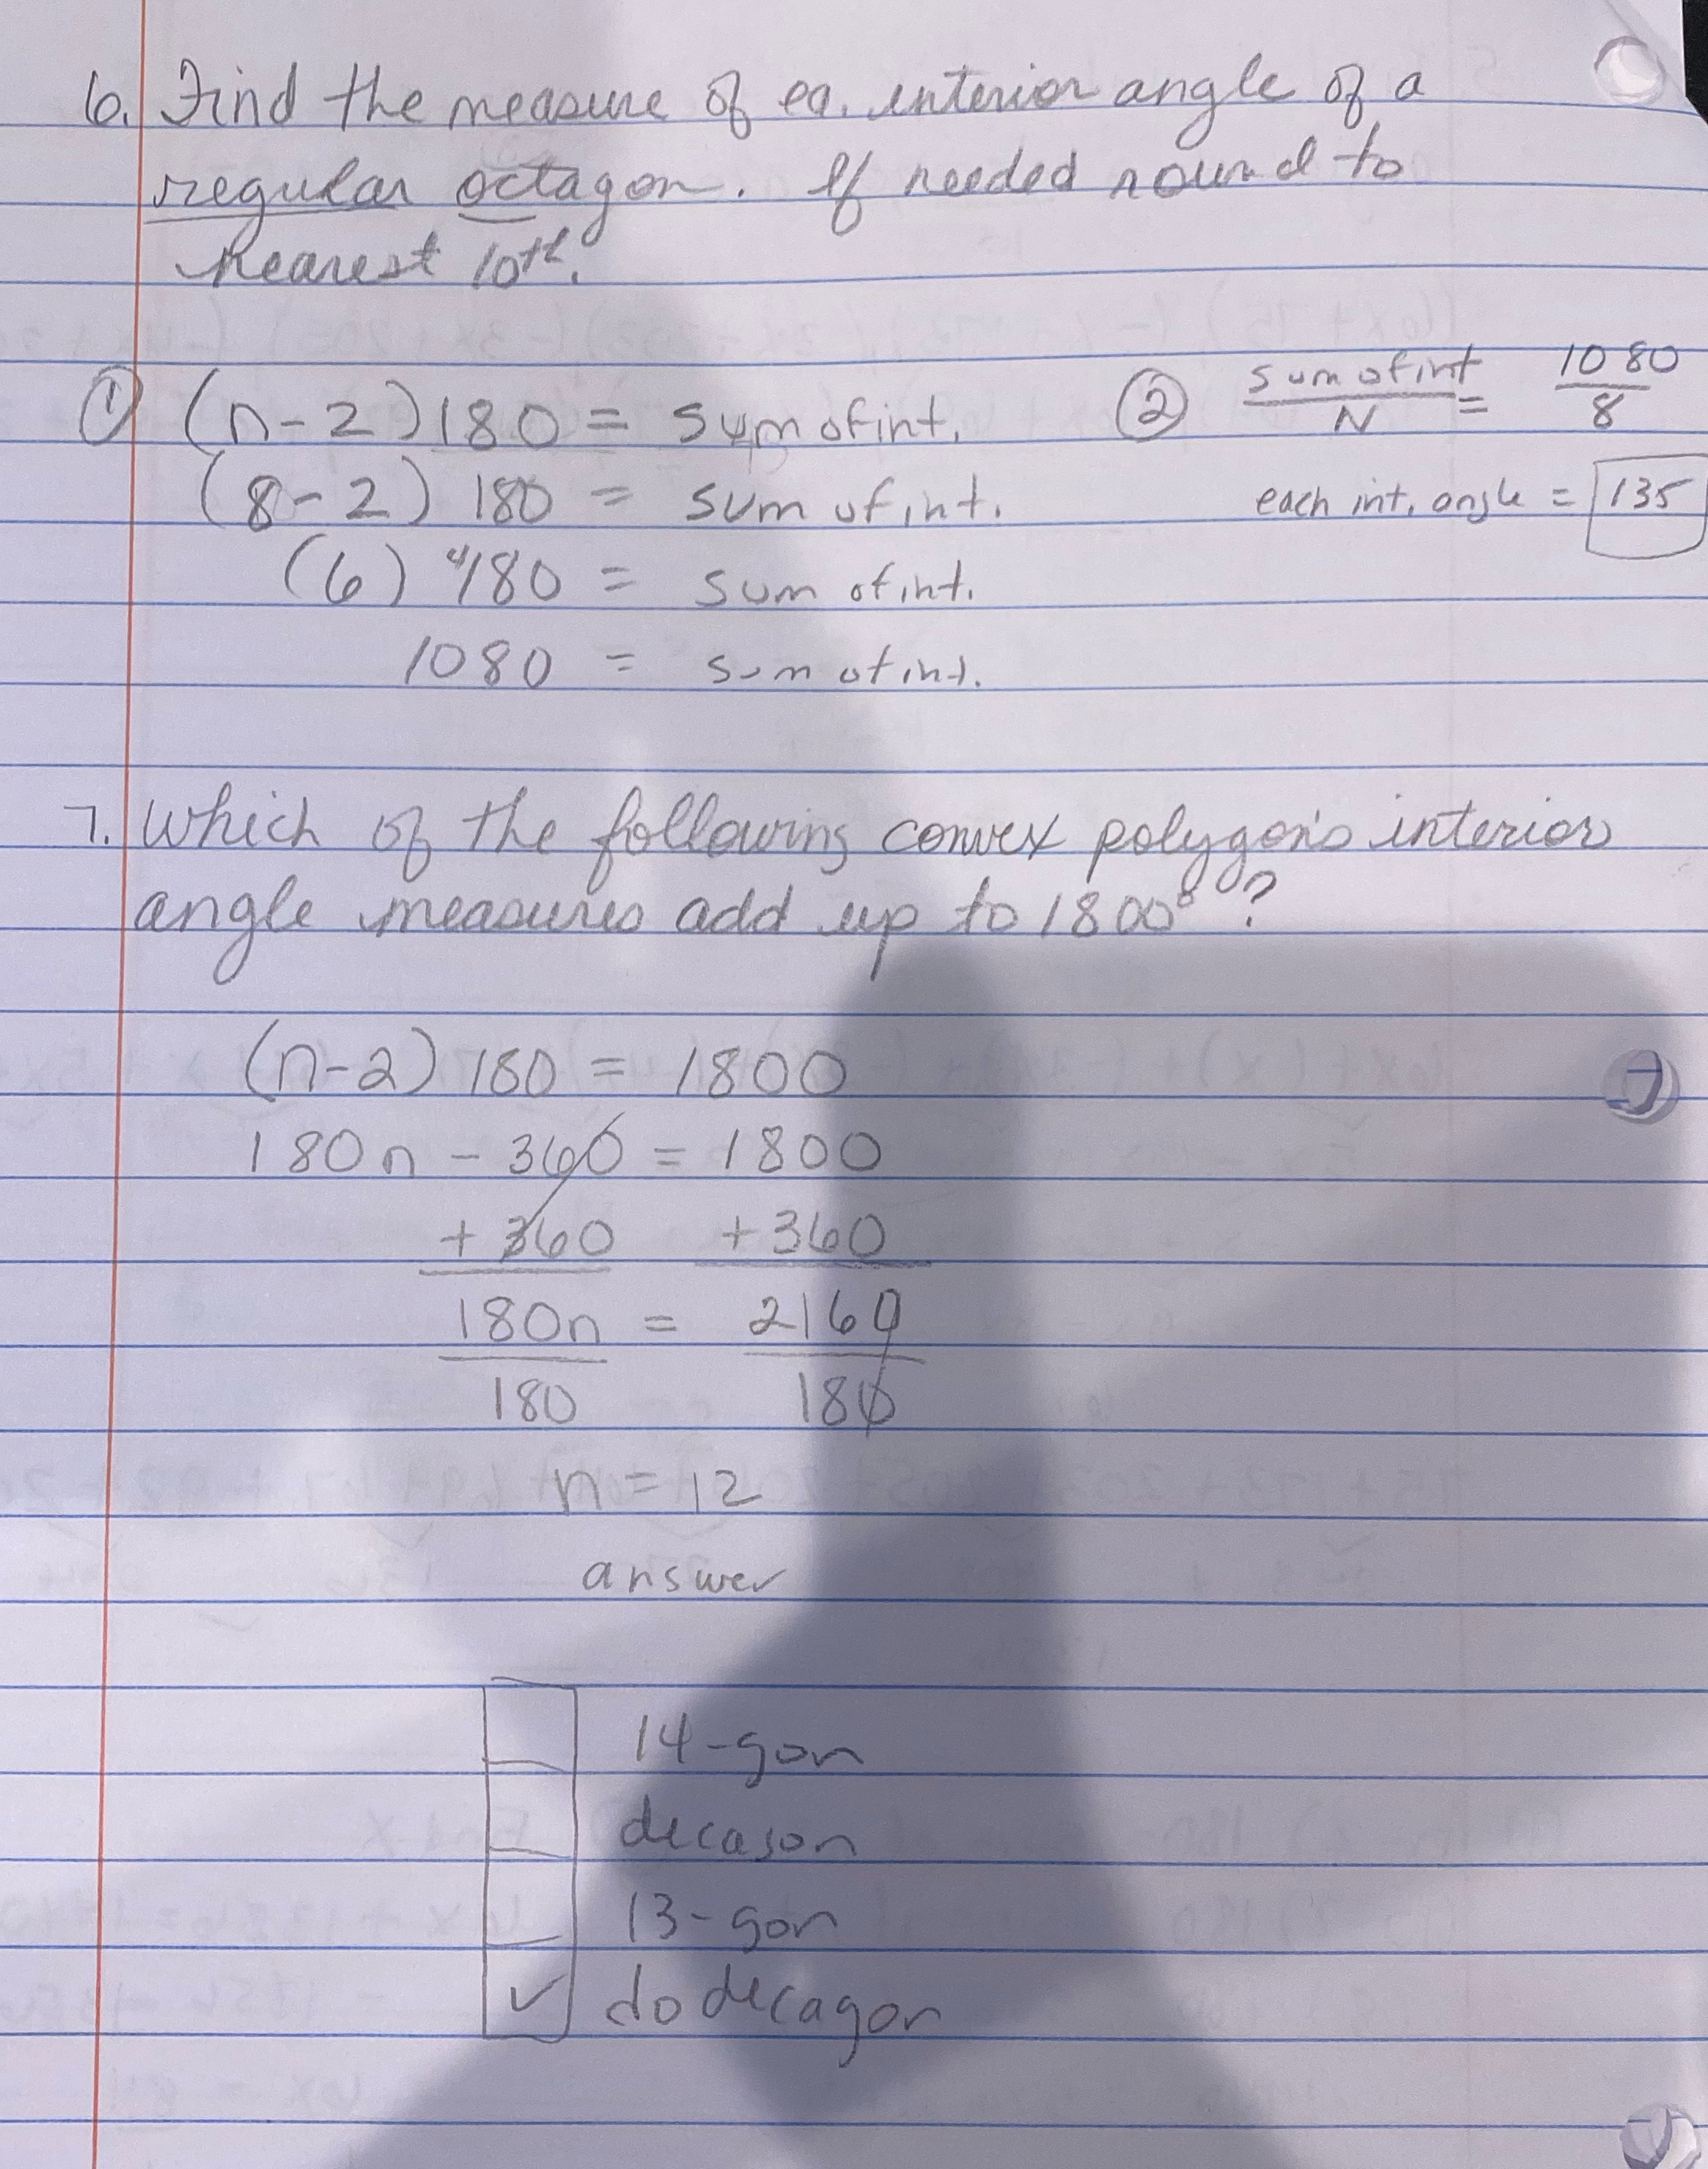 6. Find the measure of ea. interior angle of a
regular octagon. If needed round to
nearest 10th.
① (n-2)180 = sum of int.
(8-2) 180 = sum of int.
(6) 180 = sum of int.
1080 = sum of int.
② sum of int / N = 1080 / 8
each int. angle = 135
7. Which of the following convex polygon's interior
angle measures add up to 1800°?
(n-2) 180 = 1800
180n - 360 = 1800
+ 360 +360
180n = 2160
180 180
n = 12
answer
14-gon
decagon
13-gon
✓ dodecagon